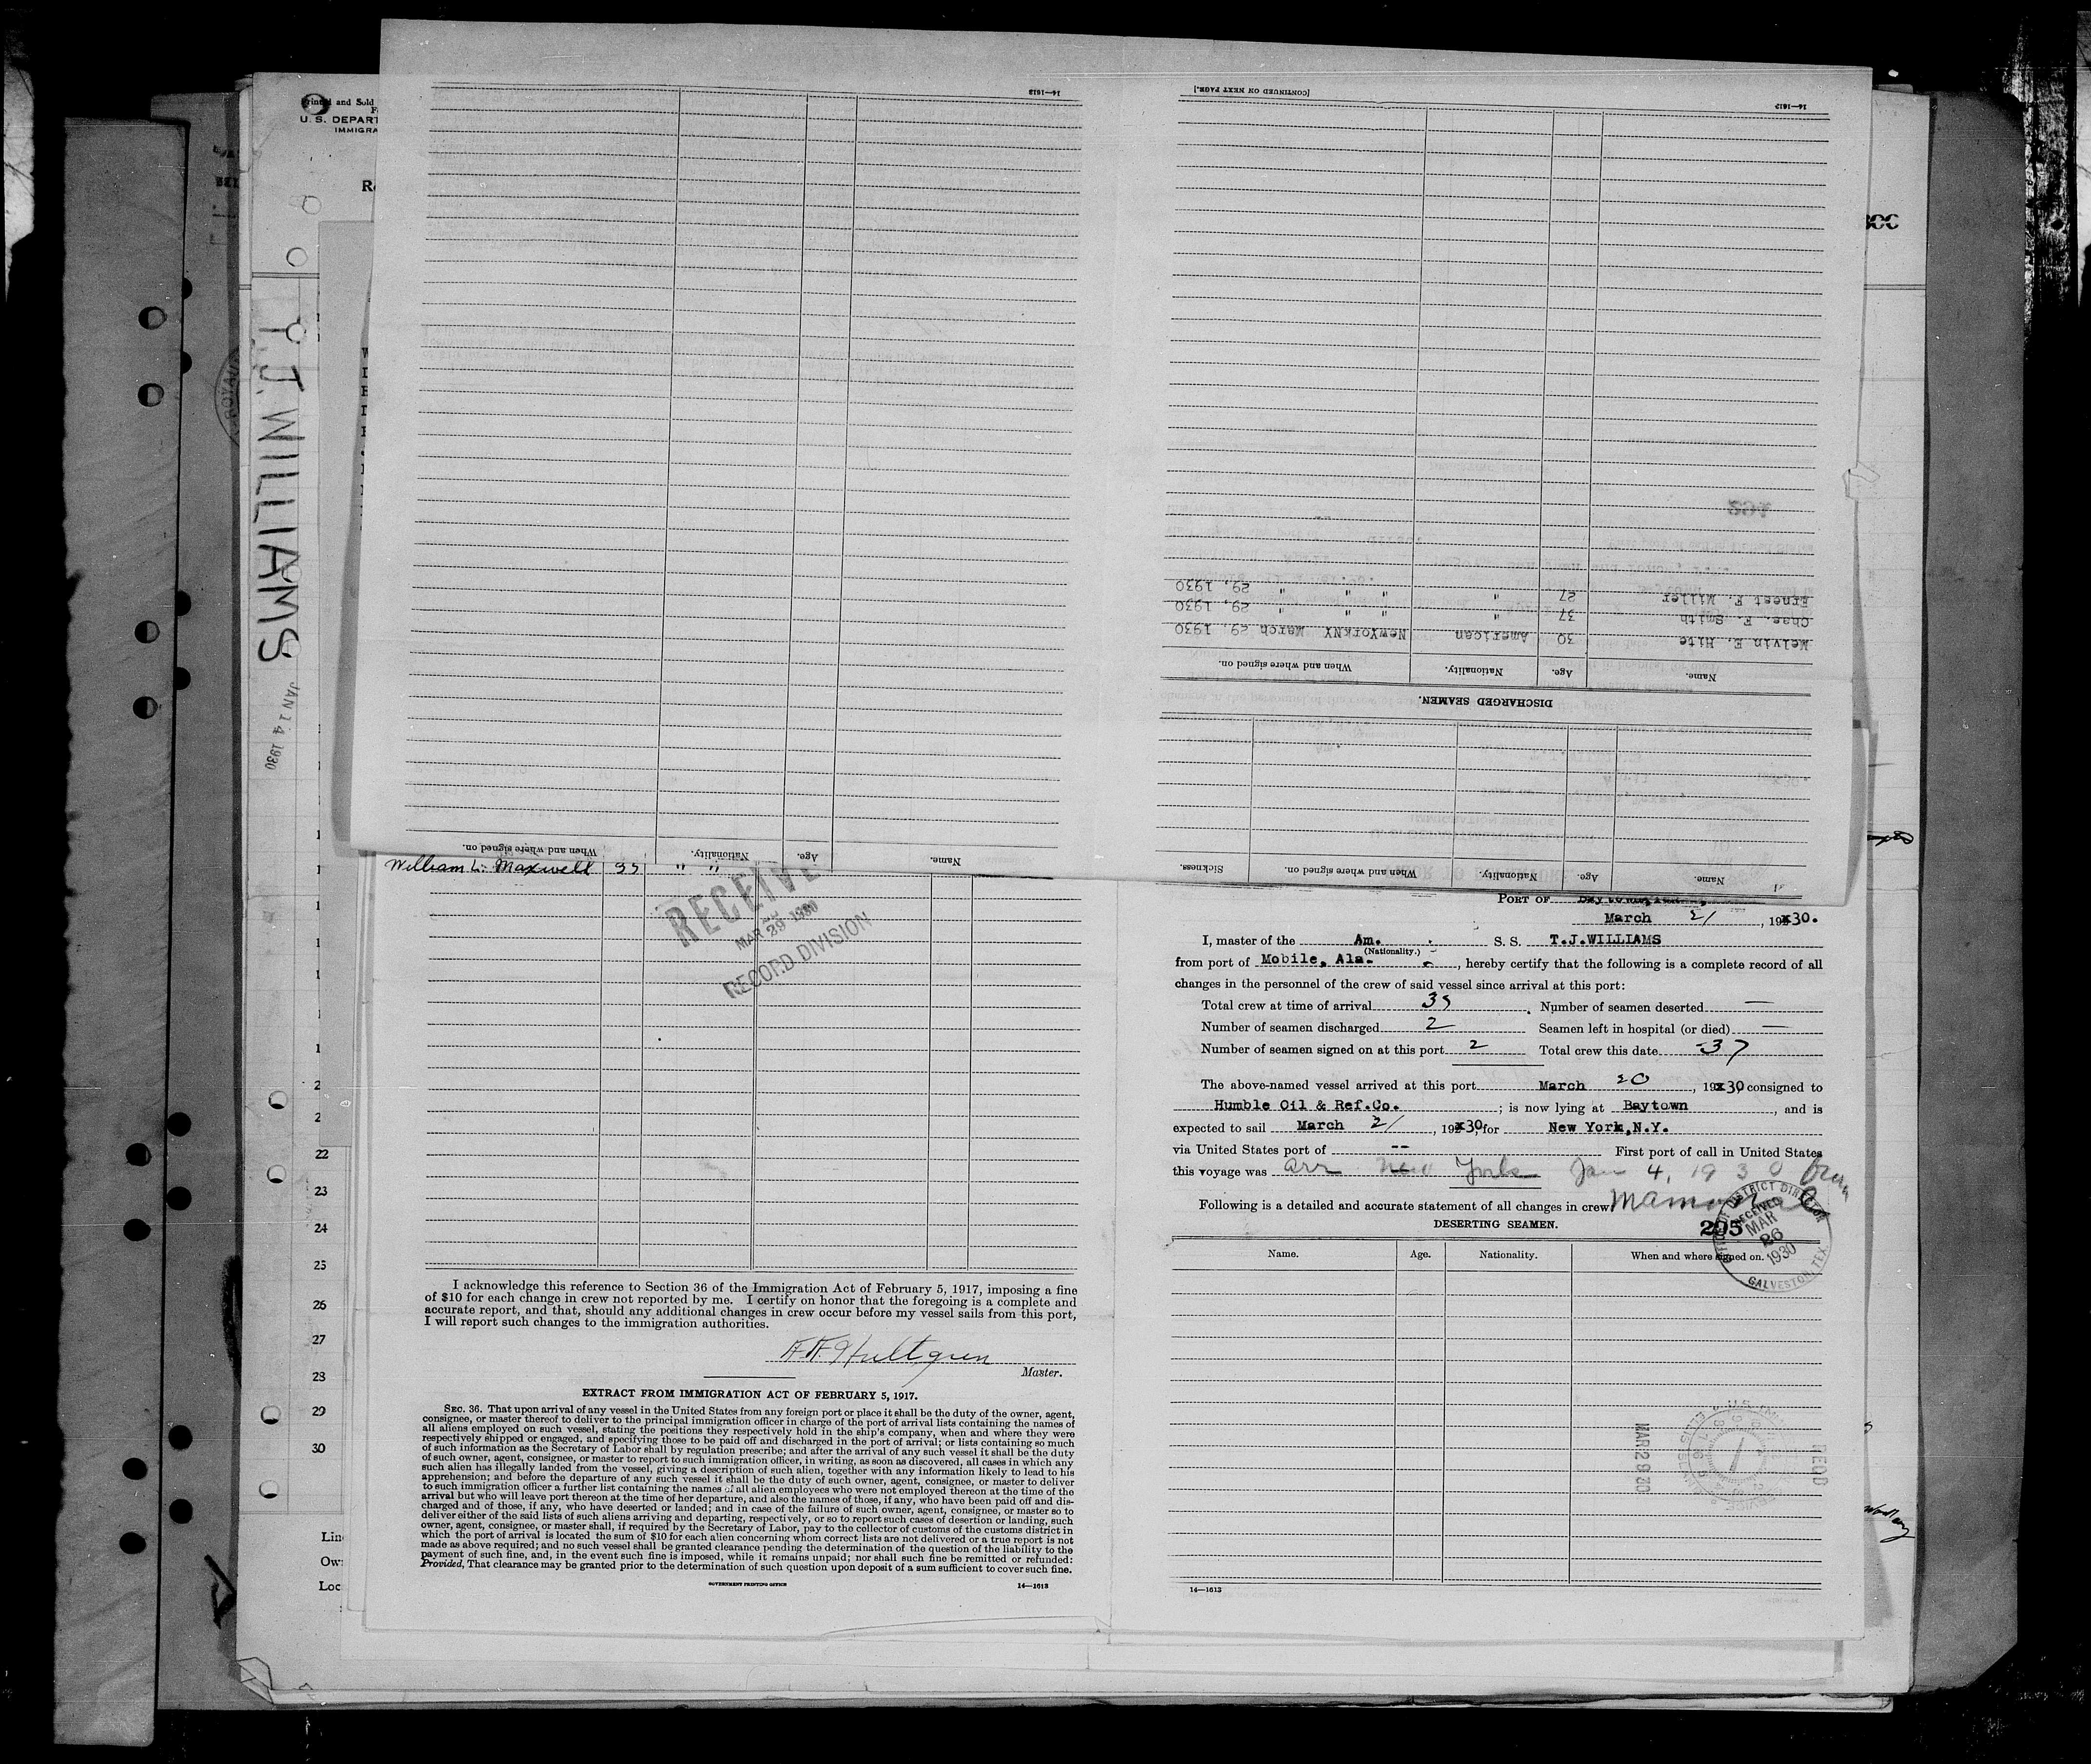 Printed and Sold
U. S. DEPART
IMMIGRA
T. J. WILLIAMS
JAN 14 1930
14—1613
[CONTINUED ON NEXT PAGE.]
14—1613
Ernest F. Miller 27 " " " " 29, 1930
Chas. F. Smith 37 " " " " 29, 1930
Melvin E. Hite 30 American NewYorkNY March 29, 1930
Name. Age. Nationality. When and where signed on.
DISCHARGED SEAMEN.
Name. Age. Nationality. When and where signed on. Sickness.
Name. Age. Nationality. When and where signed on.
William L. Maxwell " "
RECEIVE
MAR 29 1930
RECORD DIVISION
22
23
24
25
26
27
28
29
30
I acknowledge this reference to Section 36 of the Immigration Act of February 5, 1917, imposing a fine
of $10 for each change in crew not reported by me. I certify on honor that the foregoing is a complete and
accurate report, and that, should any additional changes in crew occur before my vessel sails from this port,
I will report such changes to the immigration authorities.
Hultgren
Master.
EXTRACT FROM IMMIGRATION ACT OF FEBRUARY 5, 1917.
SEC. 36. That upon arrival of any vessel in the United States from any foreign port or place it shall be the duty of the owner, agent,
consignee, or master thereof to deliver to the principal immigration officer in charge of the port of arrival lists containing the names of
all aliens employed on such vessel, stating the positions they respectively hold in the ship's company, when and where they were
respectively shipped or engaged, and specifying those to be paid off and discharged in the port of arrival; or lists containing so much
of such information as the Secretary of Labor shall by regulation prescribe; and after the arrival of any such vessel it shall be the duty
of such owner, agent, consignee, or master to report to such immigration officer, in writing, as soon as discovered, all cases in which any
such alien has illegally landed from the vessel, giving a description of such alien, together with any information likely to lead to his
apprehension; and before the departure of any such vessel it shall be the duty of such owner, agent, consignee, or master to deliver
to such immigration officer a further list containing the names of all alien employees who were not employed thereon at the time of the
arrival but who will leave port thereon at the time of her departure, and also the names of those, if any, who have been paid off and dis-
charged and of those, if any, who have deserted or landed; and in case of the failure of such owner, agent, consignee, or master so to
deliver either of the said lists of such aliens arriving and departing, respectively, or so to report such cases of desertion or landing, such
owner, agent, consignee, or master shall, if required by the Secretary of Labor, pay to the collector of customs of the customs district in
which the port of arrival is located the sum of $10 for each alien concerning whom correct lists are not delivered or a true report is not
made as above required; and no such vessel shall be granted clearance pending the determination of the question of the liability to the
payment of such fine, and, in the event such fine is imposed, while it remains unpaid; nor shall such fine be remitted or refunded:
Provided, That clearance may be granted prior to the determination of such question upon deposit of a sum sufficient to cover such fine.
GOVERNMENT PRINTING OFFICE 14—1613
PORT OF
March 21, 1930.
I, master of the Am. S. S. T.J.WILLIAMS
(Nationality.)
from port of Mobile, Ala., hereby certify that the following is a complete record of all
changes in the personnel of the crew of said vessel since arrival at this port:
Total crew at time of arrival Number of seamen deserted —
Number of seamen discharged 2 Seamen left in hospital (or died) —
Number of seamen signed on at this port 2 Total crew this date 37
The above-named vessel arrived at this port March 20, 1930, consigned to
Humble Oil & Ref.Co.; is now lying at Baytown, and is
expected to sail March 21, 1930, for New York,N.Y.
via United States port of -- First port of call in United States
this voyage was arr New York Jan 4, 1930 from
Following is a detailed and accurate statement of all changes in crew: Mamonal
DESERTING SEAMEN.
295
OFFICE OF DISTRICT DIRECTOR
RECEIVED
MAR
26
1930
GALVESTON, TEX.
Name. Age. Nationality. When and where signed on.
MAR 29 30
RECD
14—1613
Lin
Own
Loc